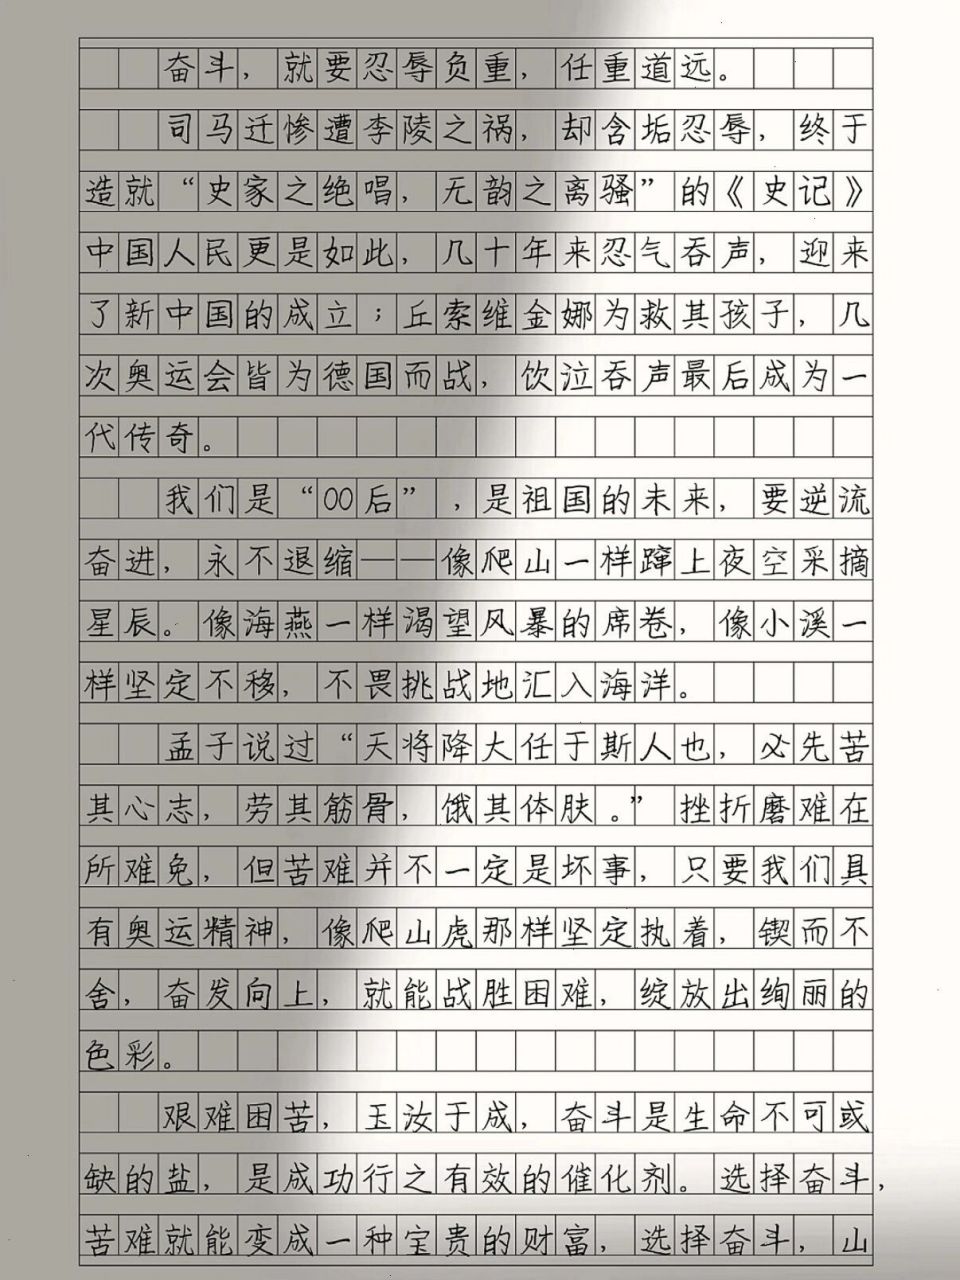 奋斗，就要忍辱负重，任重道远。
司马迁惨遭李陵之祸，却含垢忍辱，终于
造就“史家之绝唱，无韵之离骚”的《史记》
中国人民更是如此，几十年来忍气吞声，迎来
了新中国的成立；丘索维金娜为救其孩子，几
次奥运会皆为德国而战，饮泣吞声最后成为一
代传奇。
我们是“00后”，是祖国的未来，要逆流
奋进，永不退缩——像爬山一样蹿上夜空采摘
星辰。像海燕一样渴望风暴的席卷，像小溪一
样坚定不移，不畏挑战地汇入海洋。
孟子说过“天将降大任于斯人也，必先苦
其心志，劳其筋骨，饿其体肤。”挫折磨难在
所难免，但苦难并不一定是坏事，只要我们具
有奥运精神，像爬山虎那样坚定执着，锲而不
舍，奋发向上，就能战胜困难，绽放出绚丽的
色彩。
艰难困苦，玉汝于成，奋斗是生命不可或
缺的盐，是成功行之有效的催化剂。选择奋斗，
苦难就能变成一种宝贵的财富，选择奋斗，山